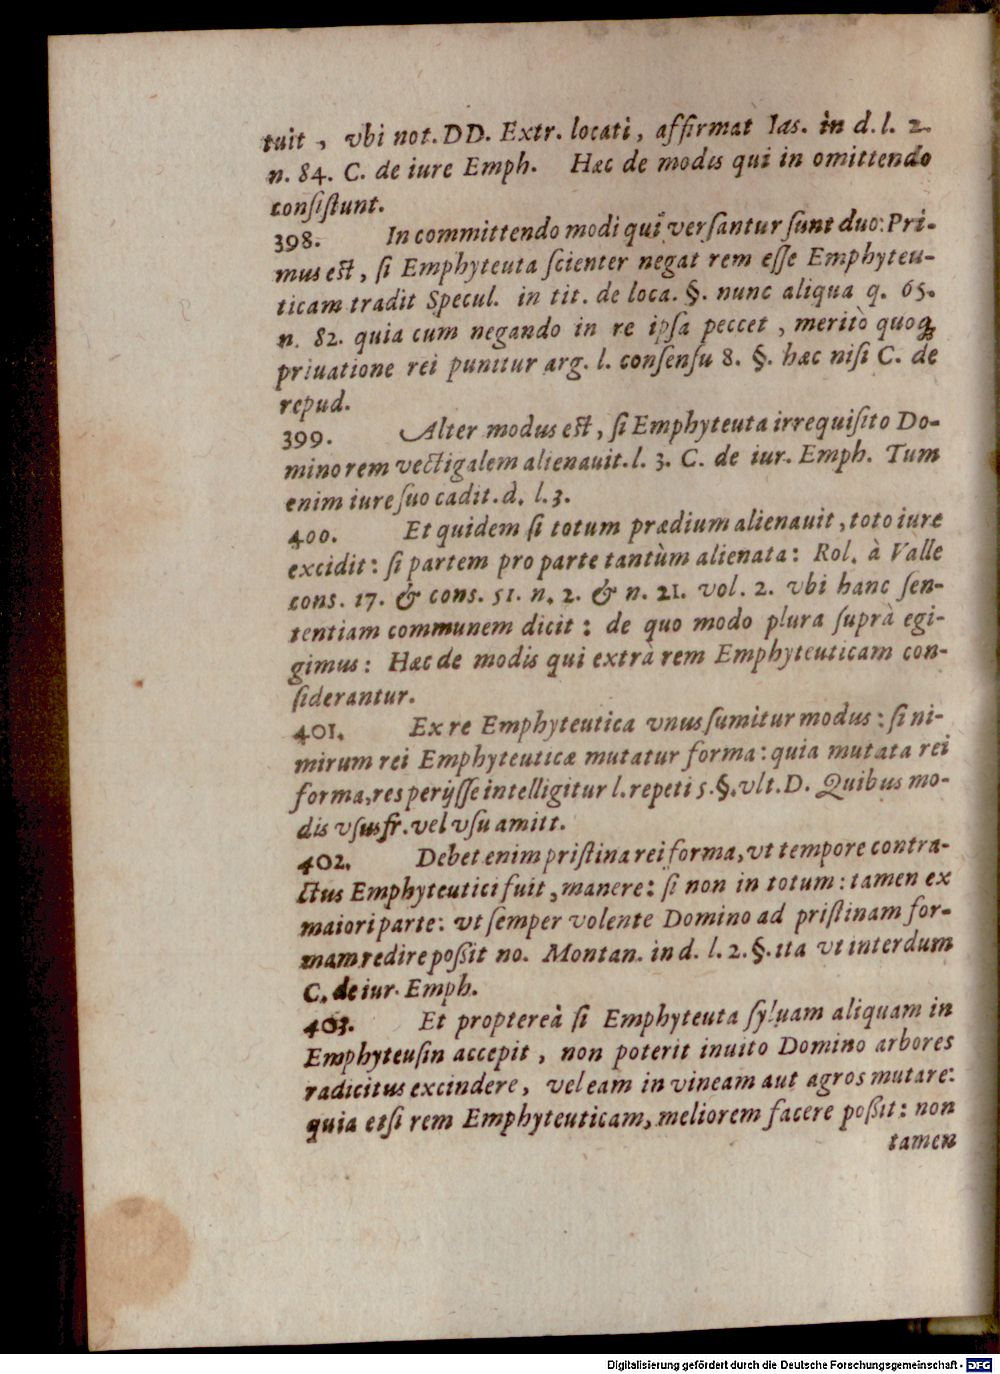 tuit , vbi not. DD. Extr. locati, affirmat Ias. in d. l. 2.
n. 84. C. de iure Emph. Hæc de modis qui in omittendo
conſiſtunt.
398. In committendo modi qui verſantur ſunt duo: Pri-
mus eſt, ſi Emphyteuta ſcienter negat rem eſſe Emphyteu-
ticam tradit Specul. in tit. de loca. §. nunc aliqua q. 65.
n. 82. quia cum negando in re ipſa peccet , meritò quoq;
priuatione rei punitur arg. l. conſenſu 8. §. hæc niſi C. de
repud.
399. Alter modus eſt, ſi Emphyteuta irrequiſito Do-
mino rem vectigalem alienauit. l. 3. C. de iur. Emph. Tum
enim iure ſuo cadit. d. l. 3.
400. Et quidem ſi totum prædium alienauit, toto iure
excidit: ſi partem pro parte tantùm alienata: Rol. à Valle
cons. 17. & cons. 51. n. 2. & n. 21. vol. 2. vbi hanc ſen-
tentiam communem dicit: de quo modo plura ſuprà egi-
gimus: Hæc de modis qui extrà rem Emphyteuticam con-
ſiderantur.
401. Ex re Emphyteutica vnus ſumitur modus: ſi ni-
mirum rei Emphyteuticæ mutatur forma: quia mutata rei
forma, res perijſſe intelligitur l. repeti 5. §. vlt. D. Quibus mo-
dis vſusfr. vel vſu amitt.
402. Debet enim priſtina rei forma, vt tempore contra-
ctus Emphyteutici fuit, manere: ſi non in totum: tamen ex
maiori parte: vt ſemper volente Domino ad priſtinam for-
mam redire poßit no. Montan. in d. l. 2. §. ita vt interdum
C. de iur. Emph.
403. Et propterea̍ ſi Emphyteuta ſyluam aliquam in
Emphyteuſin accepit , non poterit inuito Domino arbores
radicitus excindere, vel eam in vineam aut agros mutare:
quia etſi rem Emphyteuticam, meliorem facere poßit: non
tamen
Digitalisierung gefördert durch die Deutsche Forschungsgemeinschaft - DFG